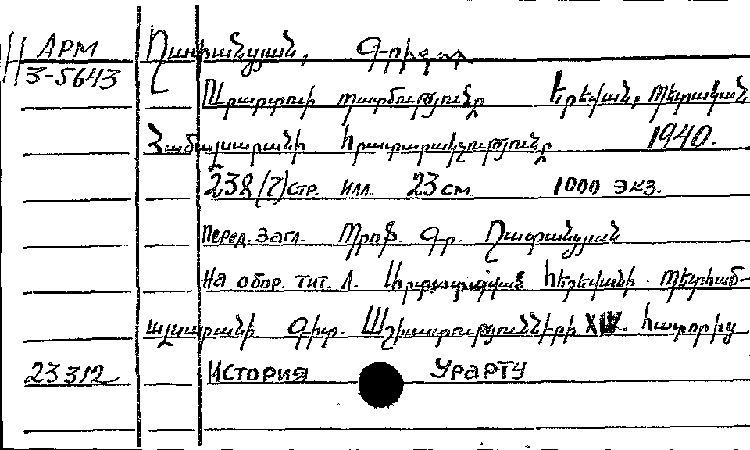 АРМ Ղափանցյան, Գրիգոր
3-5643
Ուրարտուի պատմությունը Երեվան, Պետական
Համալսարանի հրատարակչությունը 1940.
238 (2) стр. илл. 23 см 1000 экз.
Перед. загл. Պրոֆ. Գր. Ղափանցյան
На обор. тит. л. Արտատպված Երեվանի Պետհամ-
ալսարանի Գիտ. Աշխատությունների XIV. հատորից
23312 История Урарту